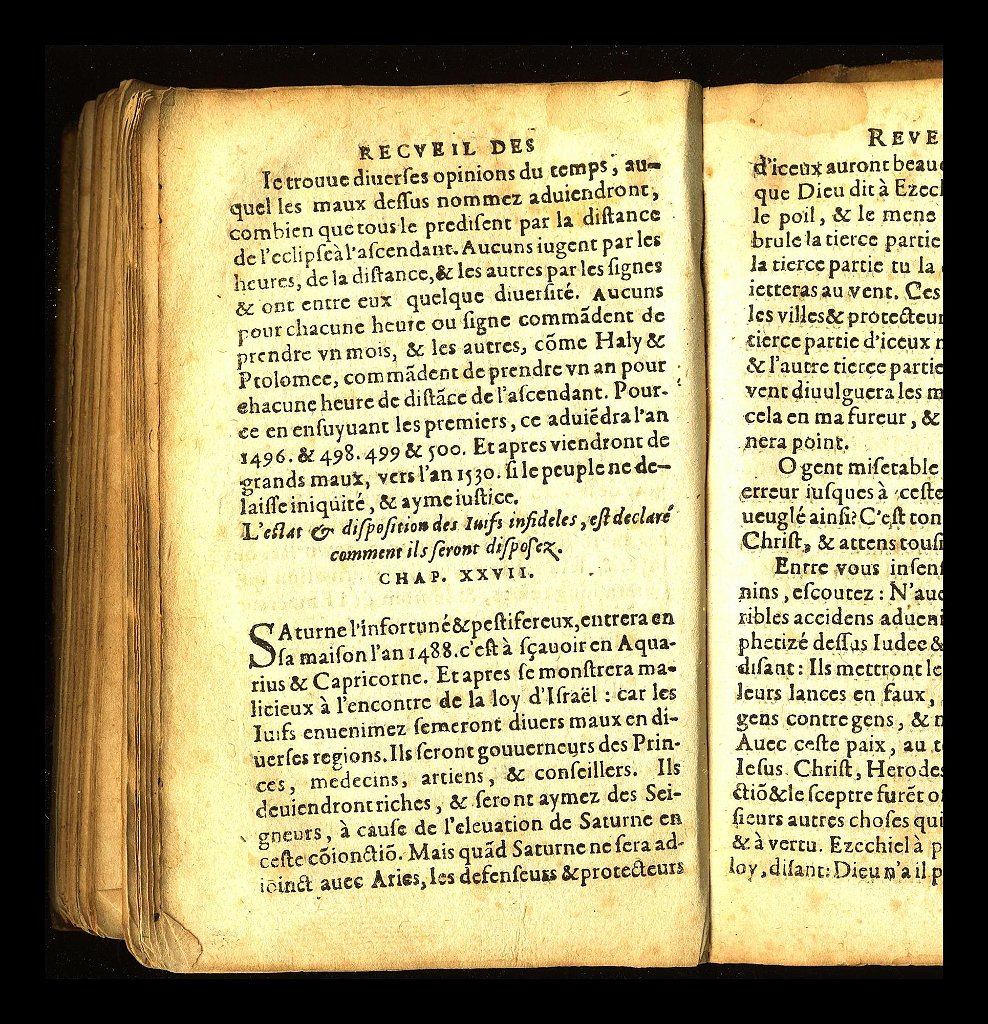 RECVEIL DES
Ie trouue diuerſes opinions du temps, au-
quel les maux deſſus nommez aduiendront,
combien que tous le prediſent par la diſtance
de l'eclipſe à l'aſcendant. Aucuns iugent par les
heures, de la diſtance, & les autres par les ſignes
& ont entre eux quelque diuerſité. Aucuns
pour chacune heure ou ſigne commãdent de
prendre vn mois, & les autres, cõme Haly &
Ptolomee, commãdent de prendre vn an pour
chacune heure de diſtãce de l'aſcendant. Pour-
ce en enſuyuant les premiers, ce aduiẽdra l'an
1496. & 498. 499 & 500. Et apres viendront de
grands maux, vers l'an 1530. ſi le peuple ne de-
laiſſe iniquité, & ayme iuſtice.
L'eſtat & diſpoſition des Iuifs infideles, eſt declaré
comment ils ſeront diſpoſez.
CHAP. XXVII.
SAturne l'infortuné & peſtifereux, entrera en
ſa maiſon l'an 1488. c'eſt à ſçauoir en Aqua-
rius & Capricorne. Et apres ſe monſtrera ma-
licieux à l'encontre de la loy d'Iſraël : car les
Iuifs enuenimez ſemeront diuers maux en di-
uerſes regions. Ils ſeront gouuerneurs des Prin-
ces, medecins, artiens, & conſeillers. Ils
deuiendront riches, & ſeront aymez des Sei-
gneurs, à cauſe de l'eleuation de Saturne en
ceſte cõionctiõ. Mais quãd Saturne ne ſera ad-
ioinct auec Aries, les defenſeurs & protecteurs
REVE
d'iceux auront beau
que Dieu dit à Ezec
le poil, & le mene
brule la tierce partie
la tierce partie tu la
ietteras au vent. Ces
les villes & protecteur
tierce partie d'iceux
& l'autre tierce partie
vent diuulguera les m
cela en ma fureur, &
nera point.
O gent miſerable
erreur iuſques à ceſte
ueuglé ainſi? C'eſt ton
Chriſt, & attens touſ
Entre vous inſen
nins, eſcoutez : N'au
ribles accidens aduen
phetizé deſſus Iudee &
diſant : Ils mettront le
leurs lances en faux,
gens contre gens, &
Auec ceſte paix, au
Ieſus Chriſt, Herodes
ctiõ & le ſceptre furẽt o
ſieurs autres choſes qui
& à vertu. Ezechiel à p
loy, diſant: Dieu n'a il p